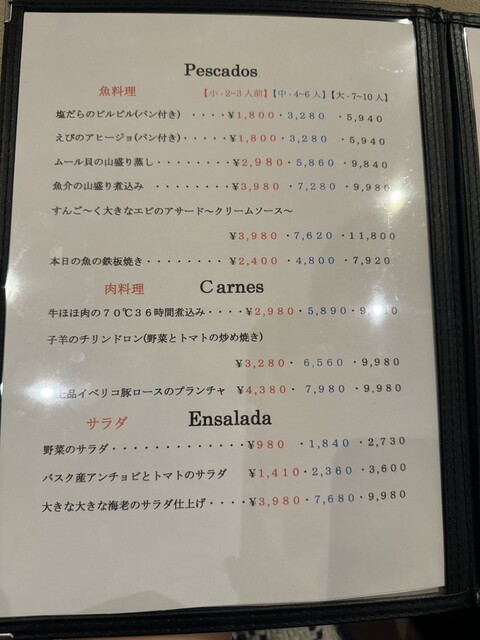 Pescados
魚料理 【小・2~3人前】【中・4~6人】【大・7~10人】
塩だらのピルピル(パン付き) ・・・・¥1,800・3,280 ・5,940
えびのアヒージョ(パン付き)・・・・・¥1,800・3,280 ・5,940
ムール貝の山盛り蒸し・・・・・・・・¥2,980・5,860 ・9,840
魚介の山盛り煮込み ・・・・・・・・¥3,980 ・7,280 ・9,980
すんご〜く大きなエビのアサード〜クリームソース〜
¥3,980 ・7,620 ・11,800
本日の魚の鉄板焼き・・・・・・・・ ¥2,400 ・4,800 ・7,920
肉料理 Carnes
牛ほほ肉の70℃36時間煮込み・・・・¥2,980・5,890・
子羊のチリンドロン(野菜とトマトの炒め焼き)
¥3,280・ 6,560 ・9,980
上品イベリコ豚ロースのプランチャ ¥4,380・ 7,980 ・9,980
サラダ Ensalada
野菜のサラダ・・・・・・・・・・・・・¥980 ・1,840 ・2,730
バスク産アンチョビとトマトのサラダ ¥1,410・2,360 ・3,600
大きな大きな海老のサラダ仕上げ・・・・¥3,980・7,680・9,980